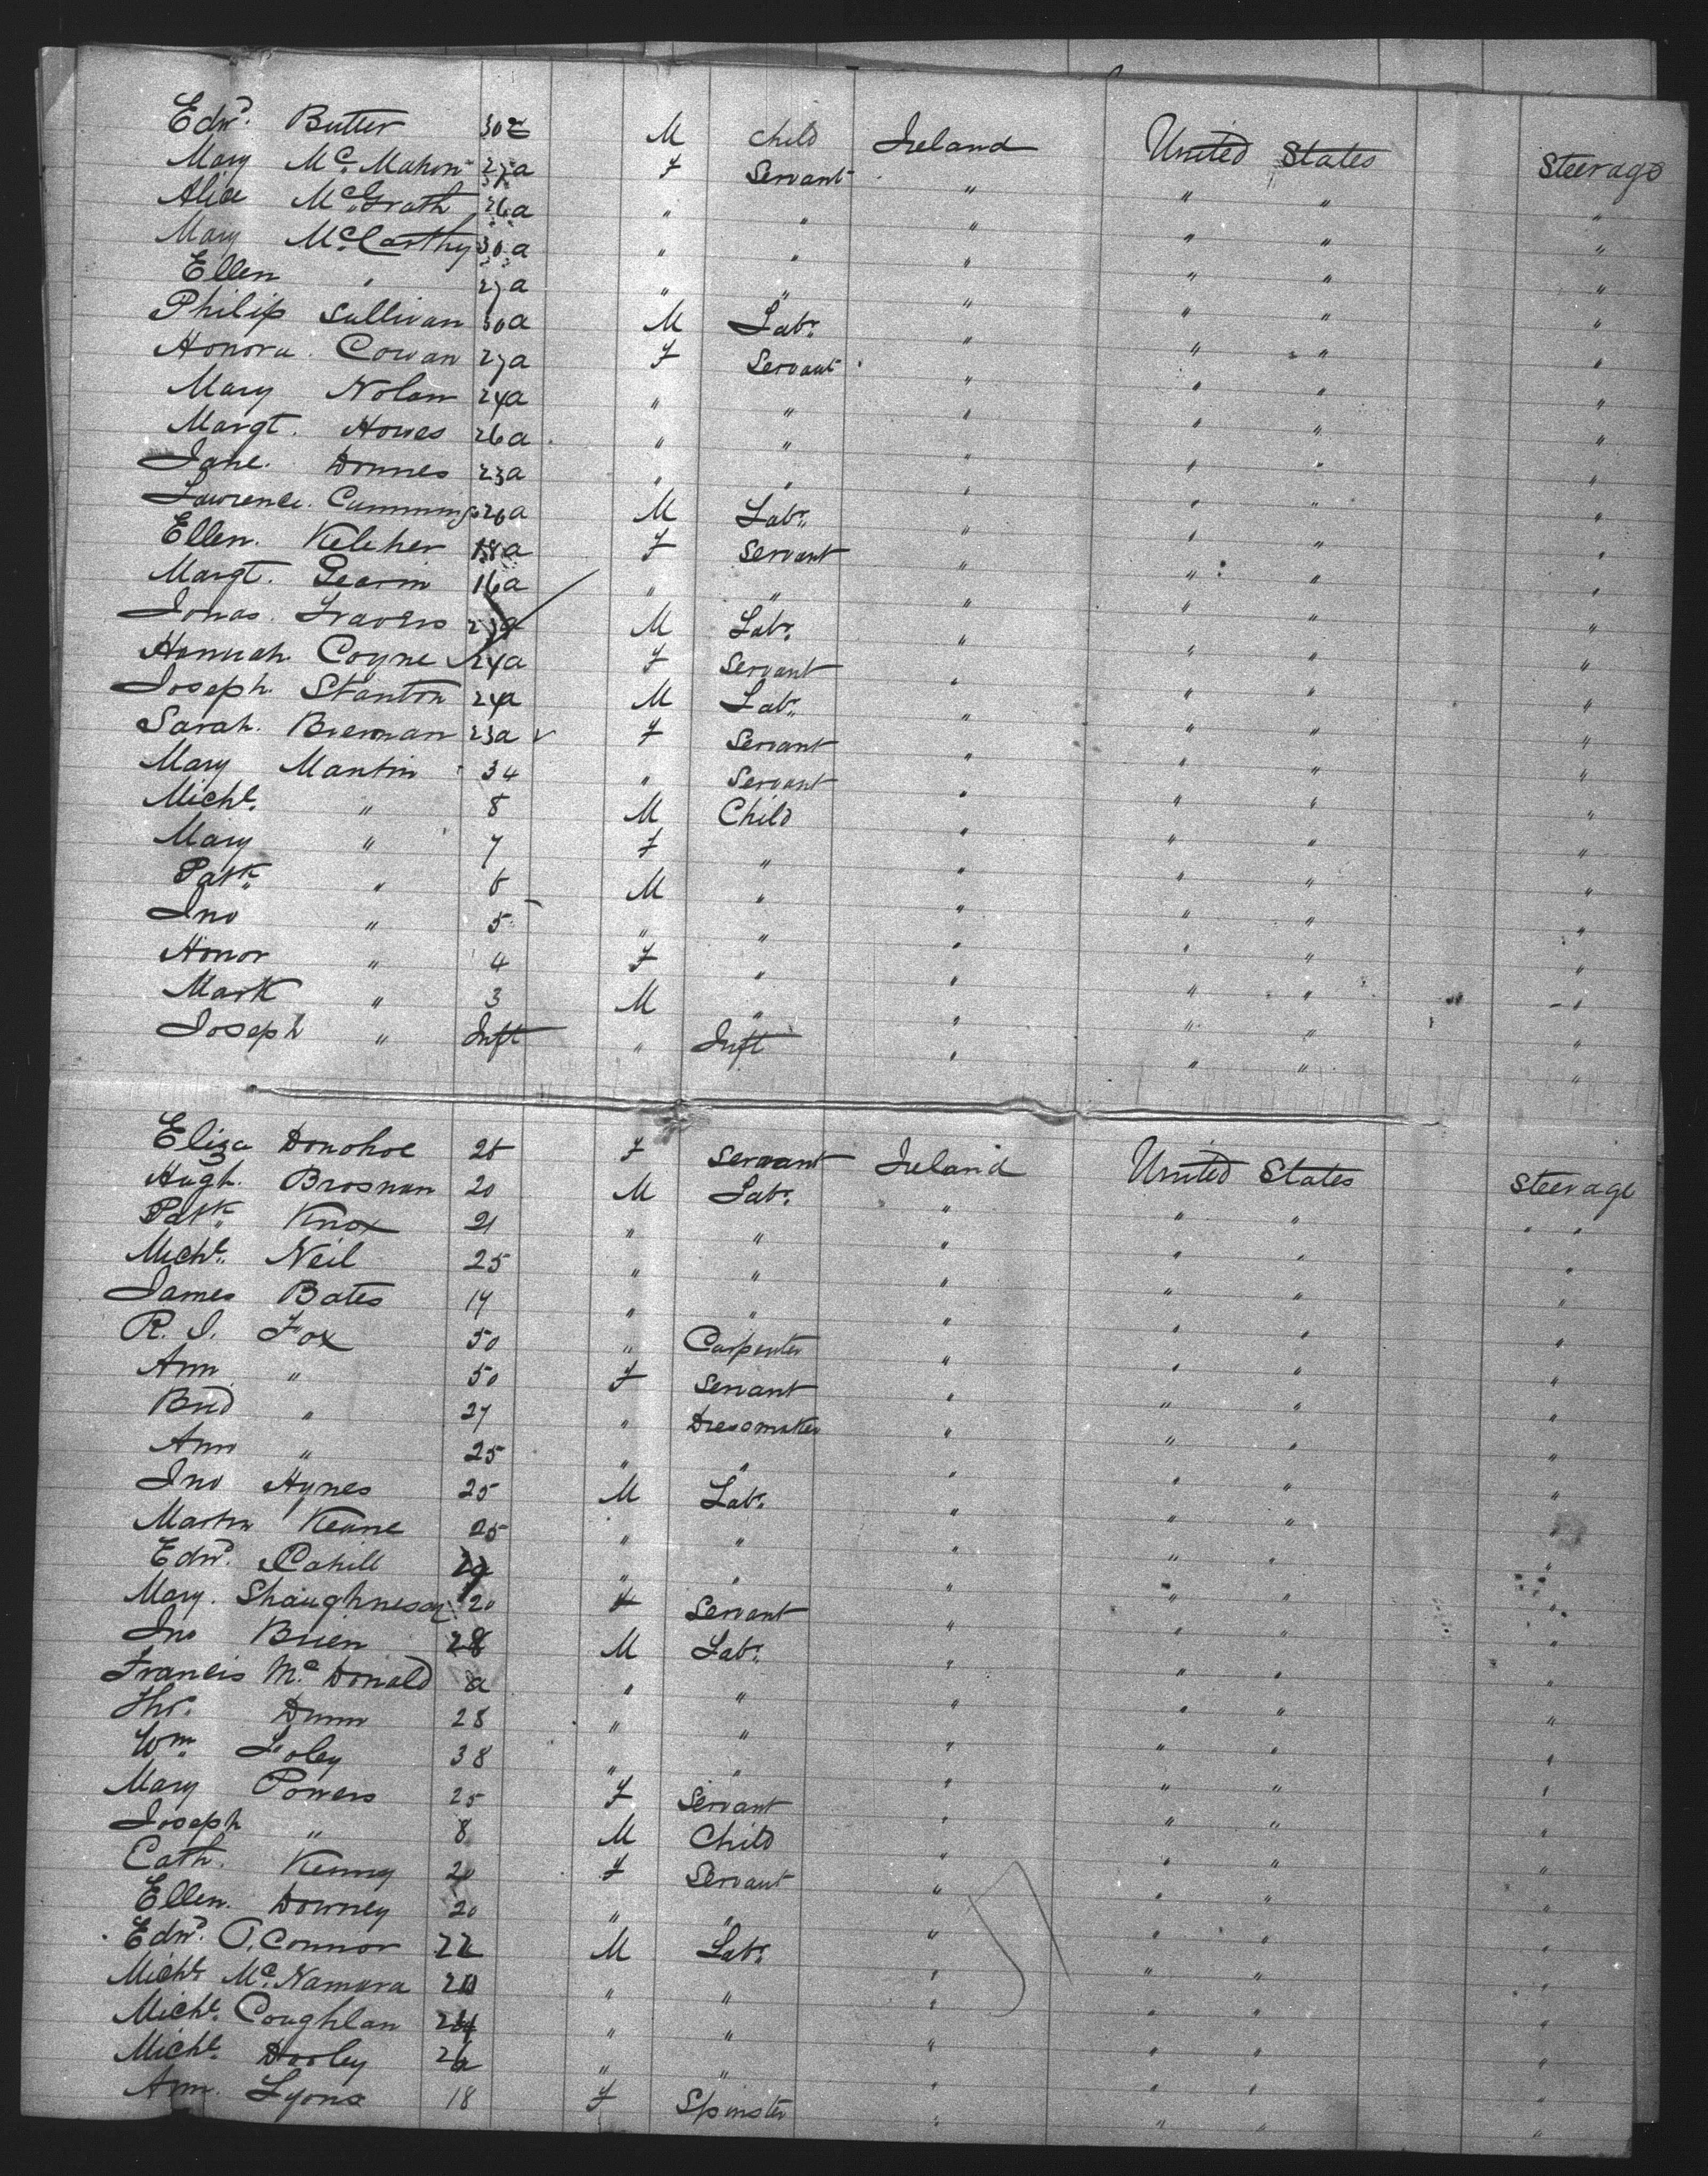 Edwd. Butter M Child Ireland United States Steerage
Mary Mc. Mahon 27a F Servant " " " "
Alice McGrath 26a " " " " " "
Mary McCarthy 30a " " " " " "
Ellen " 27a " " " " " "
Philip Sullivan 30a M Labr. " " " "
Honora. Cowan 27a F Servant " " " "
Mary Nolan 24a " " " " " "
Margt. Howes 26a " " " " " "
Jane. Downes 23a " " " " " "
Lawrence. Cummings 26a M Labr. " " " "
Ellen. Keleher 18a F Servant " " " "
Margt. Gearin 16a " " " " " "
Jonas. Travers M Labr. " " " "
Hannah. Coyne 24a F Servant " " " "
Joseph. Stanton 24a M Labr. " " " "
Sarah. Brennan 23a F Servant " " " "
Mary Mantin 34 " Servant " " " "
Michl. " 8 M Child " " " "
Mary " 7 F " " " " "
Patk. " 6 M " " " " "
Jno " 5 " " " " " "
Honor " 4 F " " " " "
Mark " 3 M " " " " "
Joseph " Inft " Inft " " " "
Eliza Donohoe 26 F Servant Ireland United States Steerage
Hugh. Brosnan 20 M Labr. " " " "
Patk. Knox 21 " " " " " "
Michl. Neil 25 " " " " " "
James Bates 17 " " " " " "
R. J. Fox 50 " Carpenter " " " "
Ann " 50 F Servant " " " "
Brid " 27 " Dressmaker " " " "
Ann " 25 " " " " " "
Jno Hynes 25 M Labr. " " " "
Martin Keane 25 " " " " " "
Edwd. Cahill " " " " " "
Mary. Shaughnessy 20 F Servant " " " "
Jno Brien 28 M Labr. " " " "
Francis Mc. Donald a " " " " " "
Thos. Dunn 28 " " " " " "
Wm Foley 38 " " " " " "
Mary Powers 25 F Servant " " " "
Joseph " 8 M Child " " " "
Cath. Kenny 20 F Servant " " " "
Ellen. Downey 20 " " " " " "
Edwd. O.Connor 22 M Labr. " " " "
Michl. Mc. Namara " " " " " "
Michl. Coughlan 24 " " " " " "
Michl. Dooley " " " " " "
Ann. Lyons 18 F Spinster " " " "